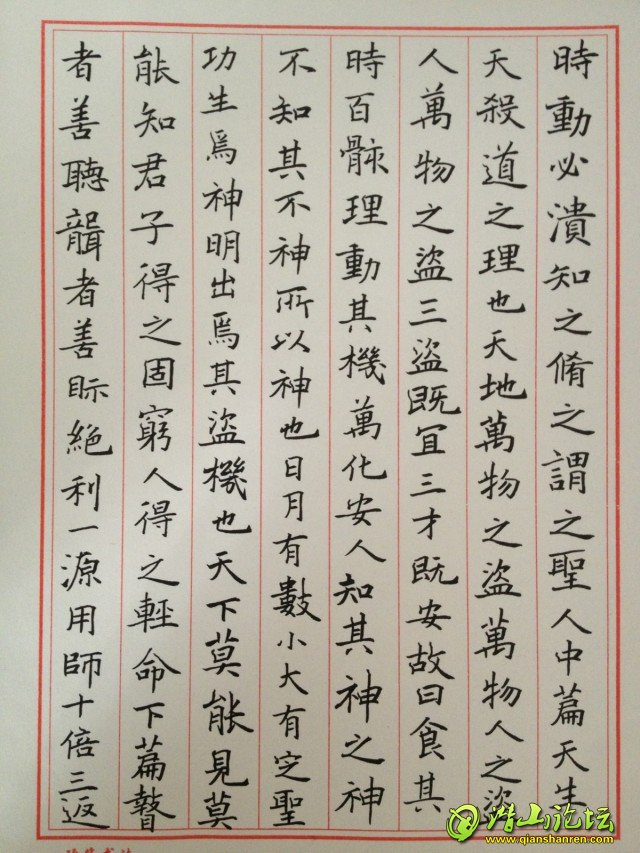 時動必潰知之脩之謂之聖人中篇天生
天殺道之理也天地萬物之盜萬物人之盜
人萬物之盜三盜既冝三才既安故曰食其
時百骸理動其機萬化安人知其神之神
不知其不神所以神也日月有數小大有定聖
功生焉神明出焉其盜機也天下莫能見莫
能知君子得之固窮人得之輕命下篇瞽
者善聽聾者善眎絕利一源用師十倍三返
潜山论坛
www.qianshanren.com